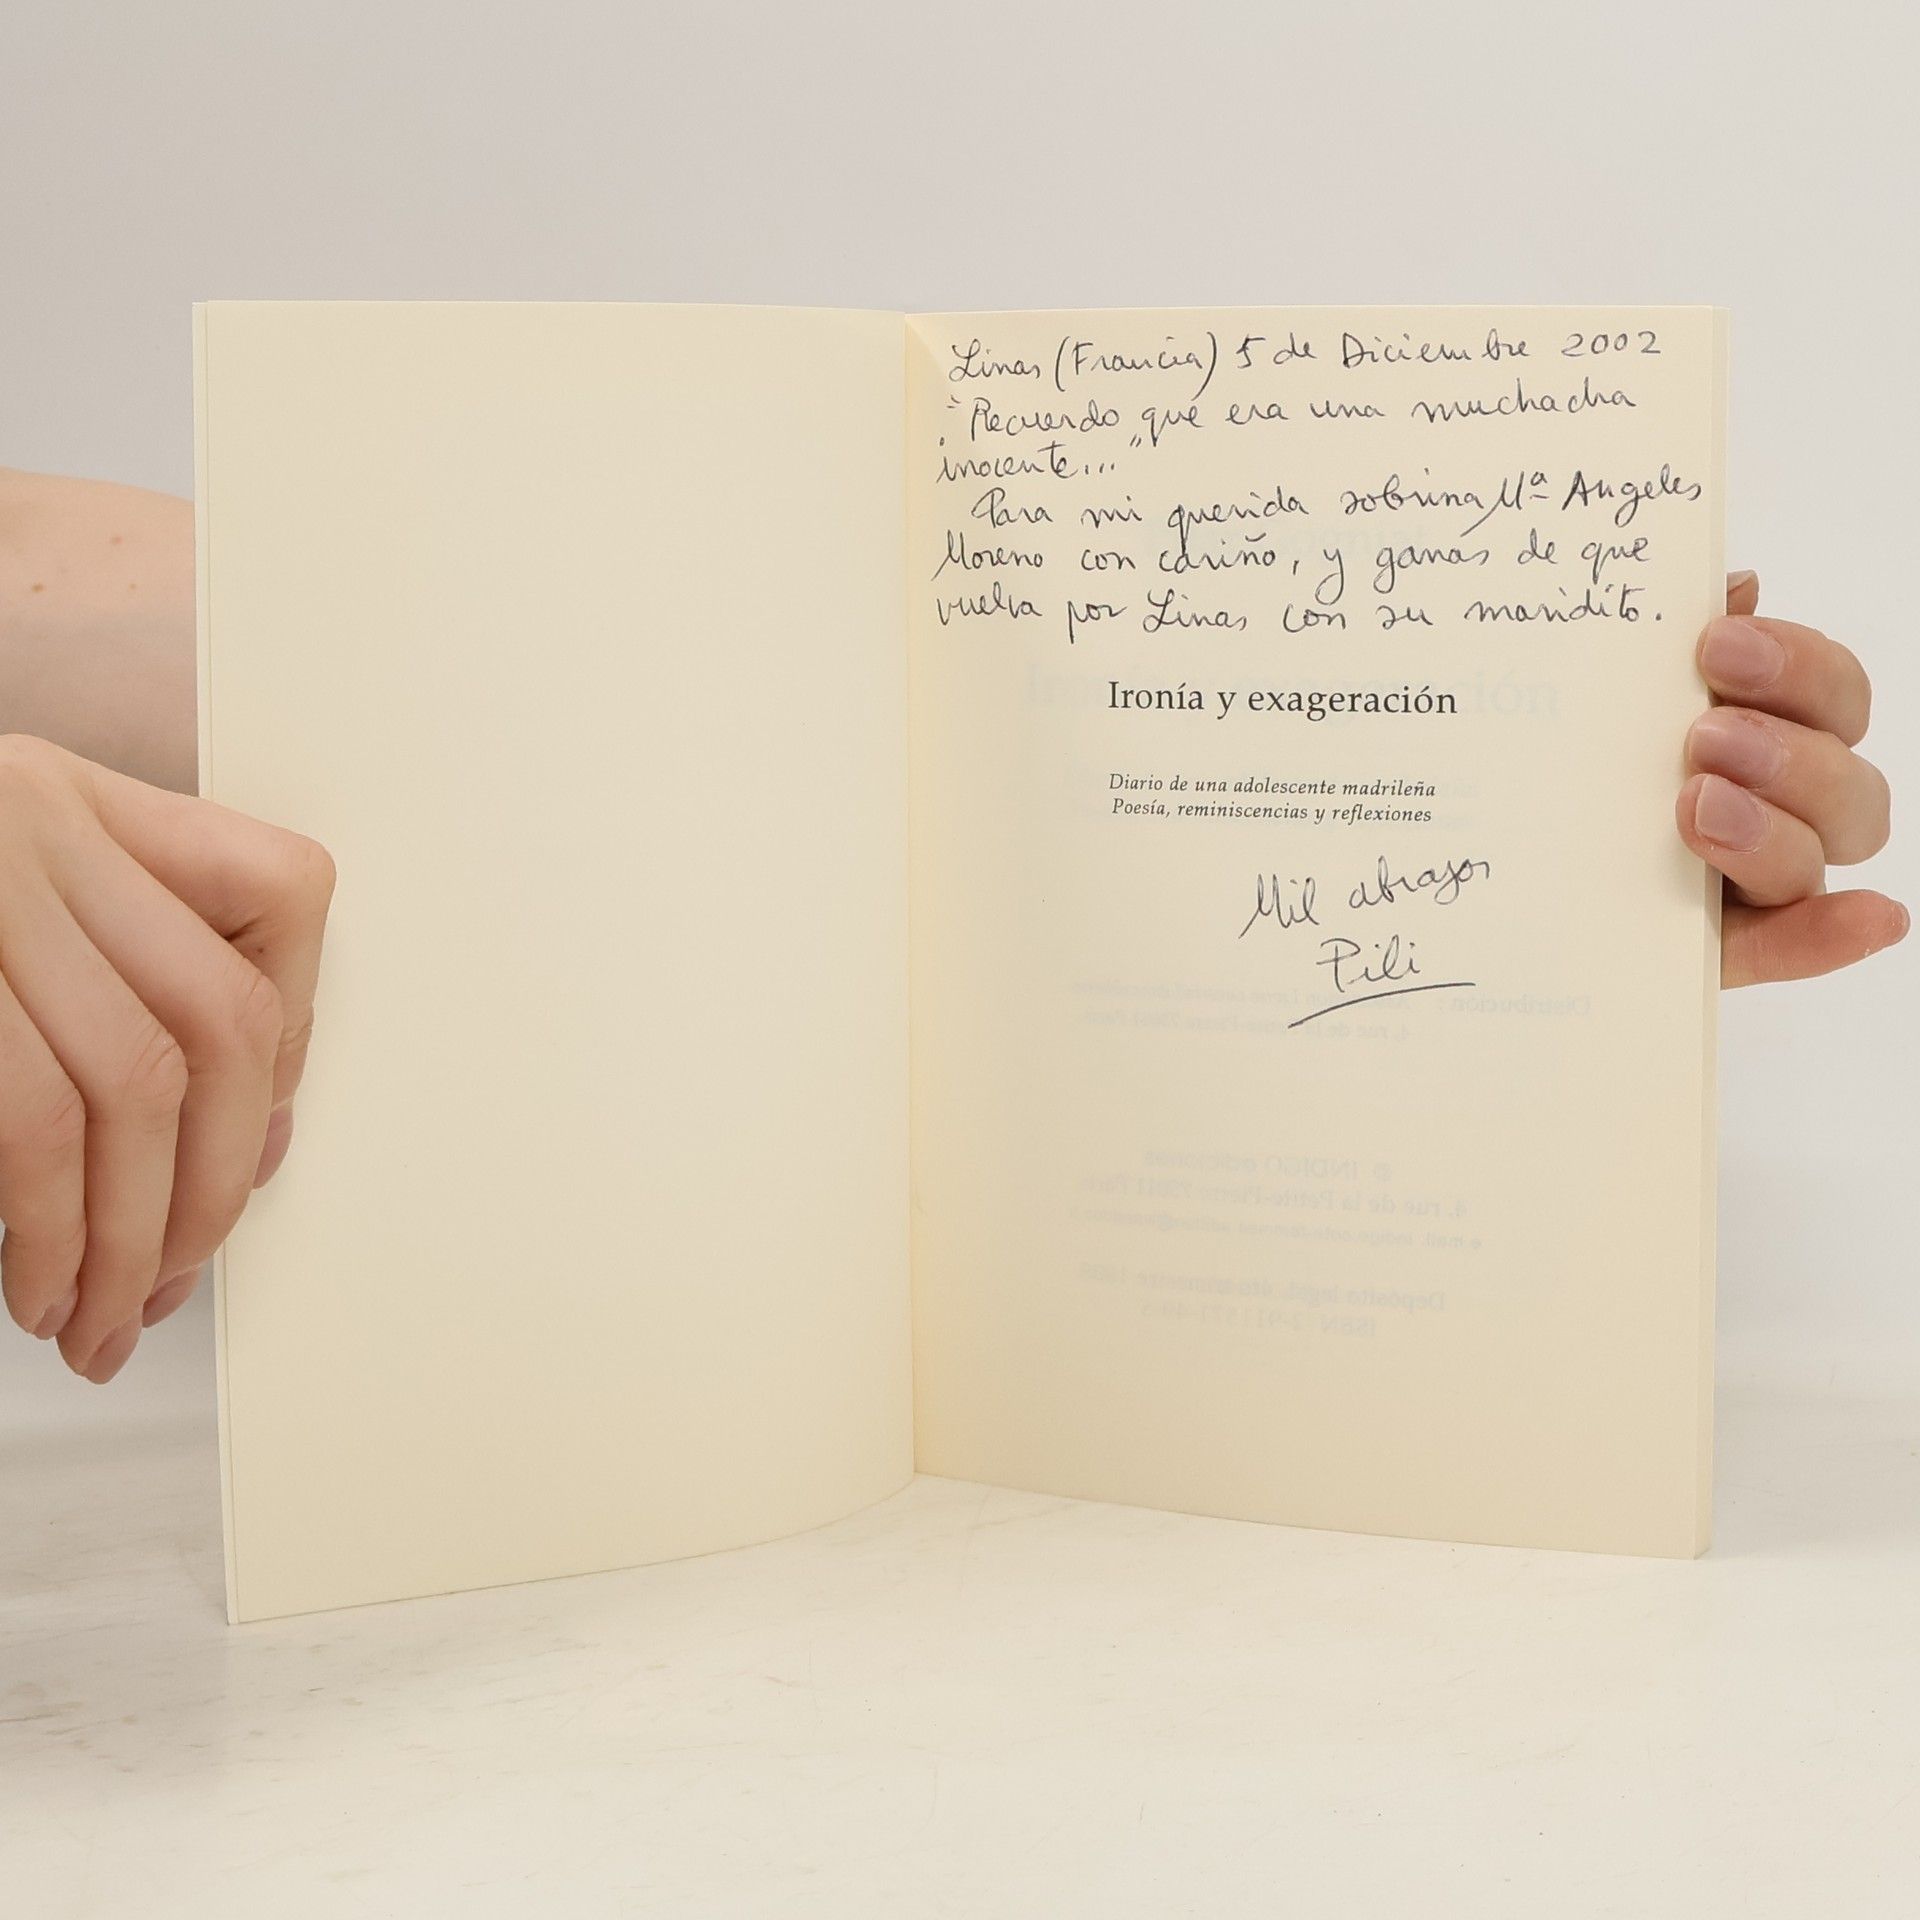 Linas (Francia) 5 de Diciembre 2002
"Recuerdo que era una muchacha
inocente..."
Para mi querida sobrina Mª Angeles
Moreno con cariño, y ganas de que
vuelva por Linas con su maridito.
Ironía y exageración
Diario de una adolescente madrileña
Poesía, reminiscencias y reflexiones
Mil abrazos
Pili